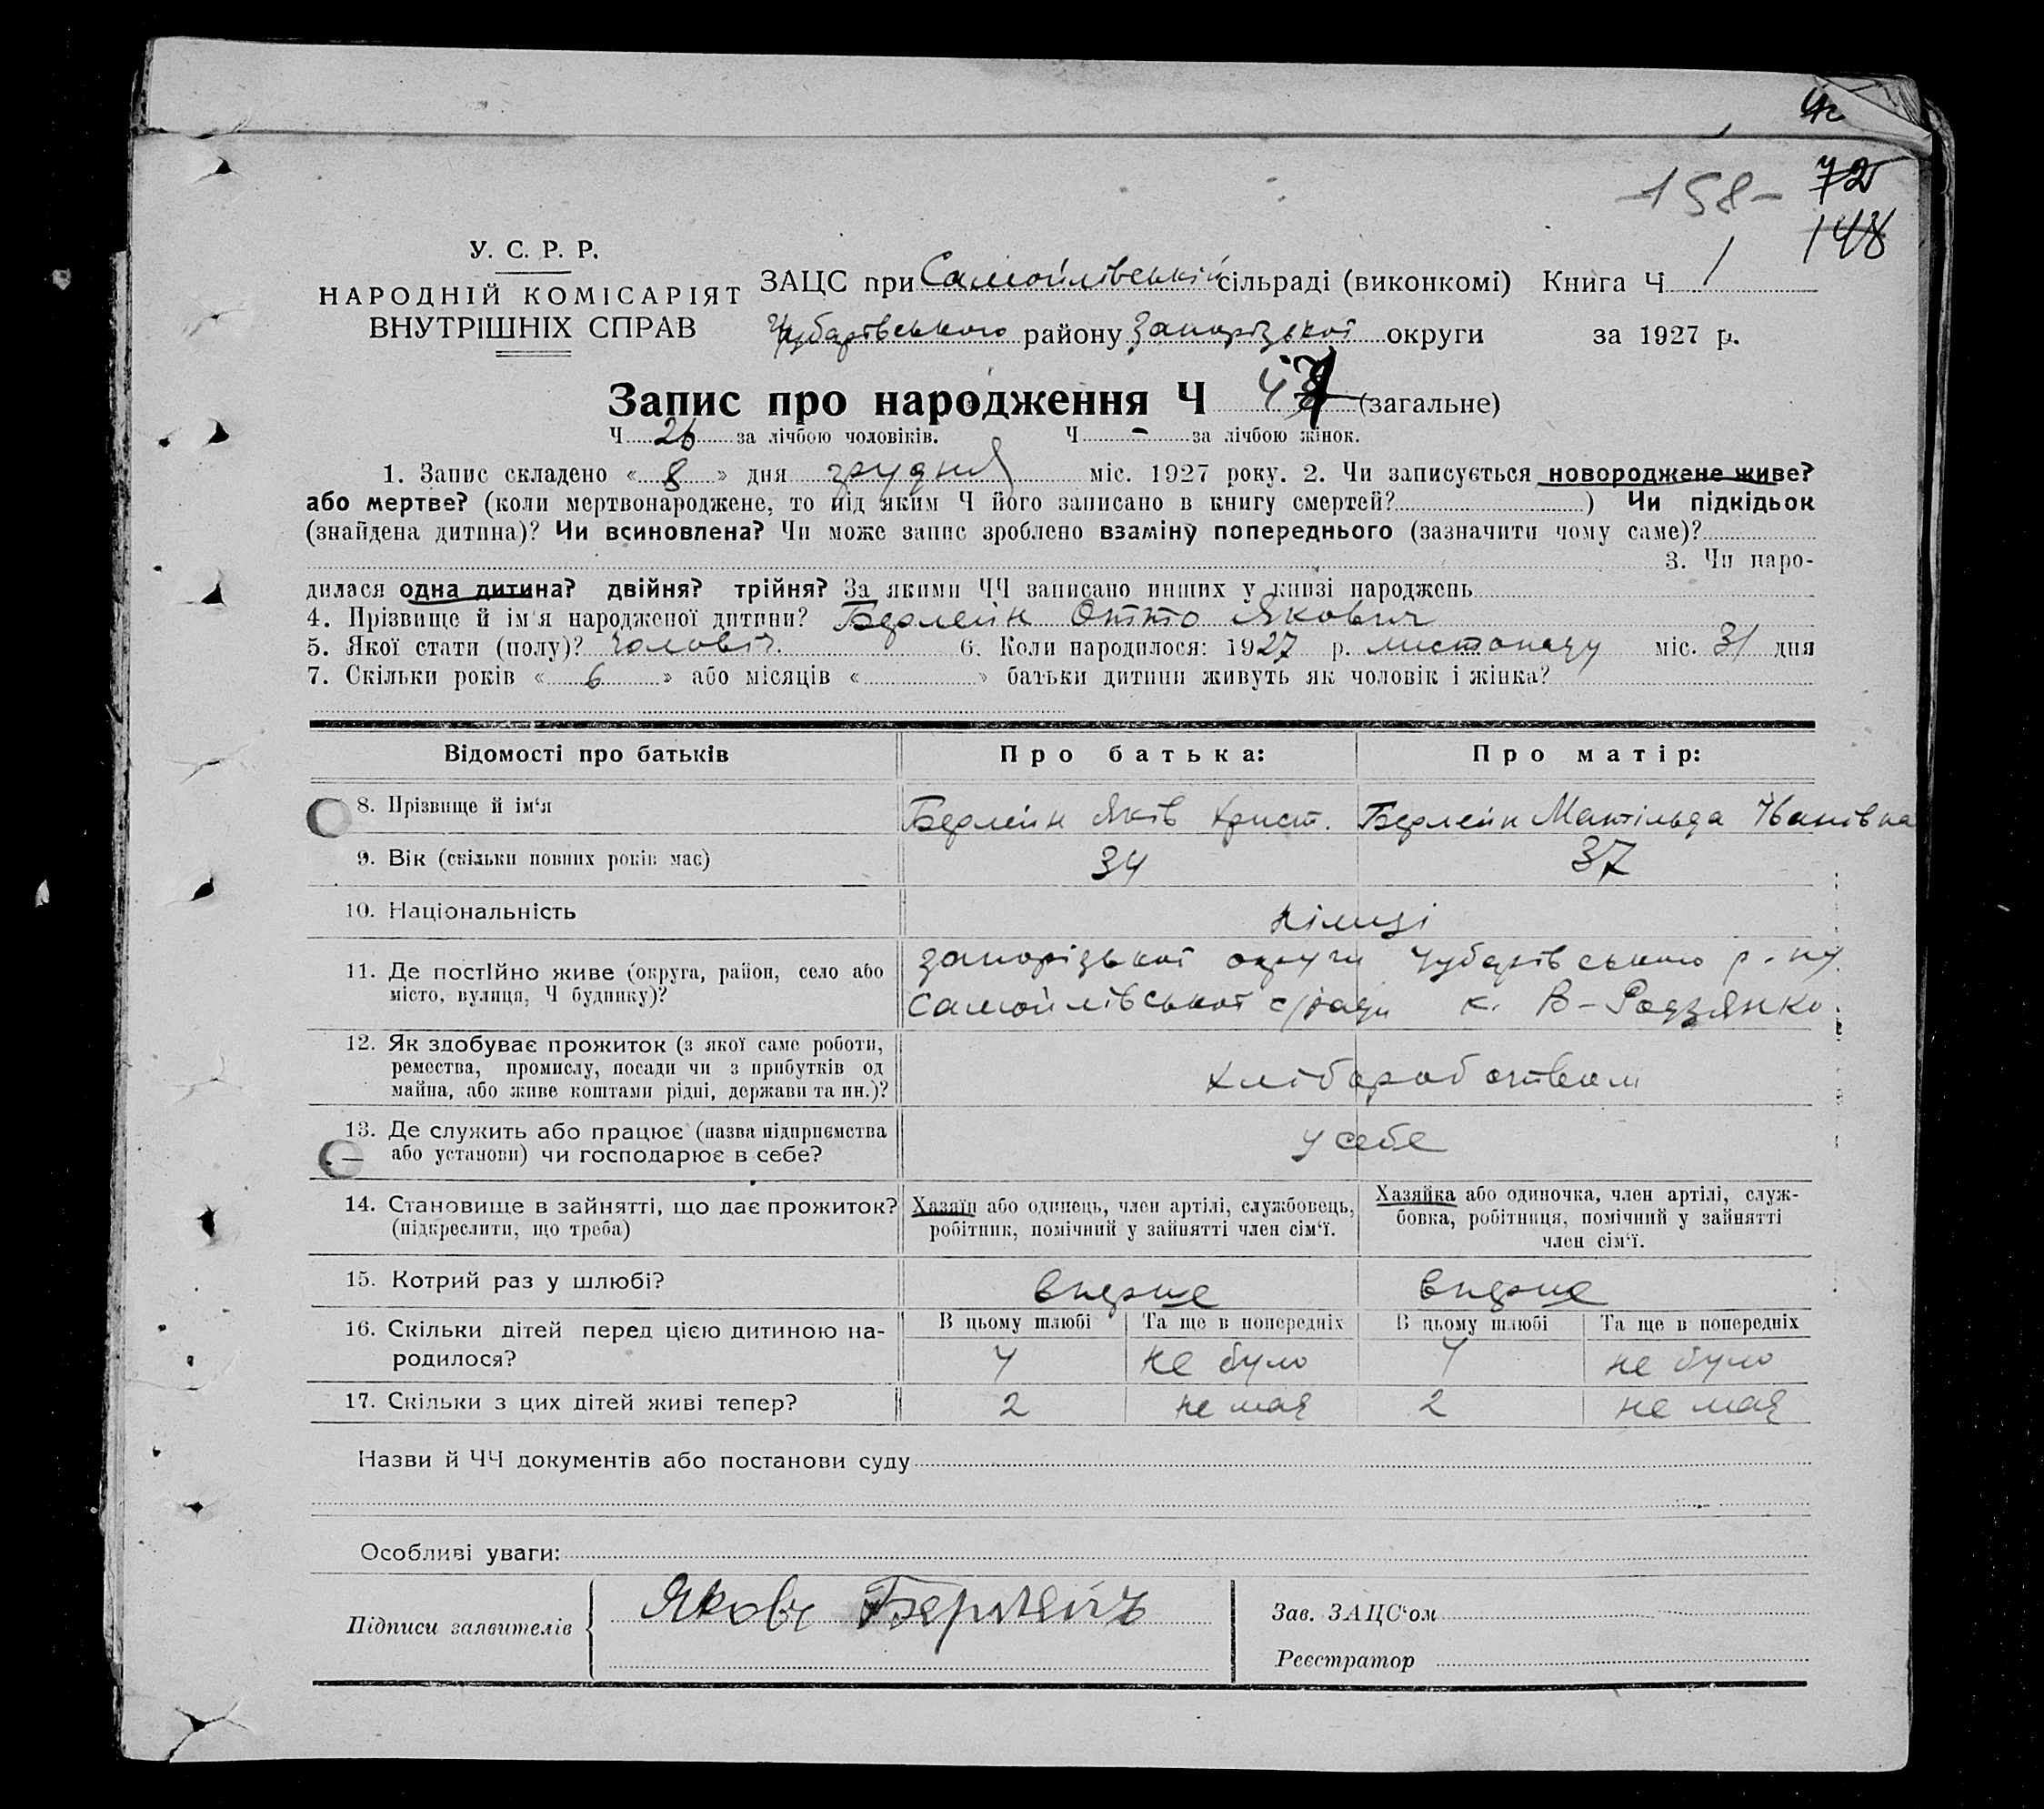 72
-158-
148
У. С. Р. Р.
НАРОДНІЙ КОМІСАРІЯТ
ВНУТРІШНІХ СПРАВ
ЗАЦС при Самойлівській сільраді (виконкомі) Книга Ч 1
Чубарівського району Запорізької округи за 1927 р.
Запис про народження Ч 47 (загальне)
Ч 26 за лічбою чоловіків. Ч - за лічбою жінок.
1. Запис складено « 8 » дня грудня міс. 1927 року. 2. Чи записується новороджене живе?
або мертве? (коли мертвонароджене, то під яким Ч його записано в книгу смертей? ) Чи підкідьок
(знайдена дитина)? Чи всиновлена? Чи може запис зроблено взаміну попереднього (зазначити чому саме)?
3. Чи наро-
дилася одна дитина? двійня? трійня? За якими ЧЧ записано инших у книзі народжень
4. Прізвище й ім'я народженої дитини? Берлейн Отто Якович
5. Якої стати (полу)? чоловіч. 6. Коли народилося: 1927 р. листопаду міс. 31 дня
7. Скільки років « 6 » або місяців « » батьки дитини живуть як чоловік і жінка?
Відомості про батьків Про батька: Про матір:
8. Прізвище й ім'я Берлейн Яків Крист. Берлейн Мактільда Іванівна
9. Вік (скільки повних років має) 34 37
10. Національність німці
11. Де постійно живе (округа, район, село або
місто, вулиця, Ч будинку)?
Запорізької округи Чубарівського р-ну
Самойлівської с/ради к. В-Родзянко
12. Як здобуває прожиток (з якої саме роботи,
ремества, промислу, посади чи з прибутків од
майна, або живе коштами рідні, держави та ин.)?
хліборобством
13. Де служить або працює (назва підприємства
або установи) чи господарює в себе?
у себе
14. Становище в зайнятті, що дає прожиток?
(підкреслити, що треба)
Хазяїн або одинець, член артілі, службовець,
робітник, помічний у зайнятті член сім'ї.
Хазяйка або одиночка, член артілі, служ-
бовка, робітниця, помічний у зайнятті
член сім'ї.
15. Котрий раз у шлюбі? вперше вперше
16. Скільки дітей перед цією дитиною на-
родилося?
В цьому шлюбі Та ще в попередніх В цьому шлюбі Та ще в попередніх
4 не було 4 не було
17. Скільки з цих дітей живі тепер? 2 не має 2 не має
Назви й ЧЧ документів або постанови суду
Особливі уваги:
Підписи заявителів Яковъ Берлейнъ
Зав. ЗАЦС'ом
Реєстратор